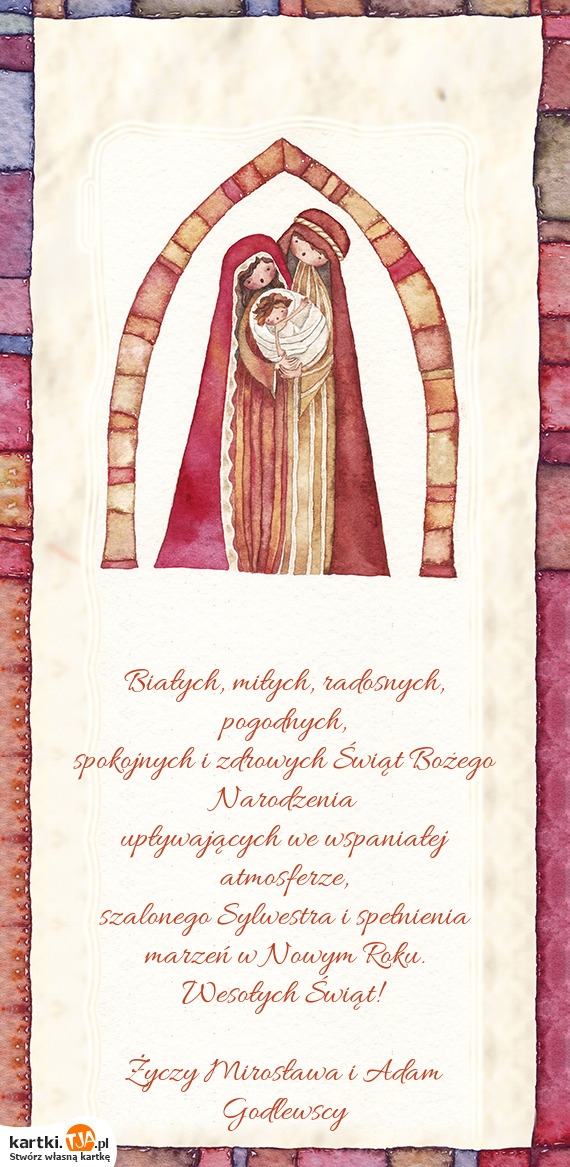 Białych, miłych, radosnych,
pogodnych,
spokojnych i zdrowych Świąt Bożego
Narodzenia
upływających we wspaniałej
atmosferze,
szalonego Sylwestra i spełnienia
marzeń w Nowym Roku.
Wesołych Świąt!
Życzy Mirosława i Adam
Godlewscy
kartki.TJA.pl
Stwórz własną kartkę